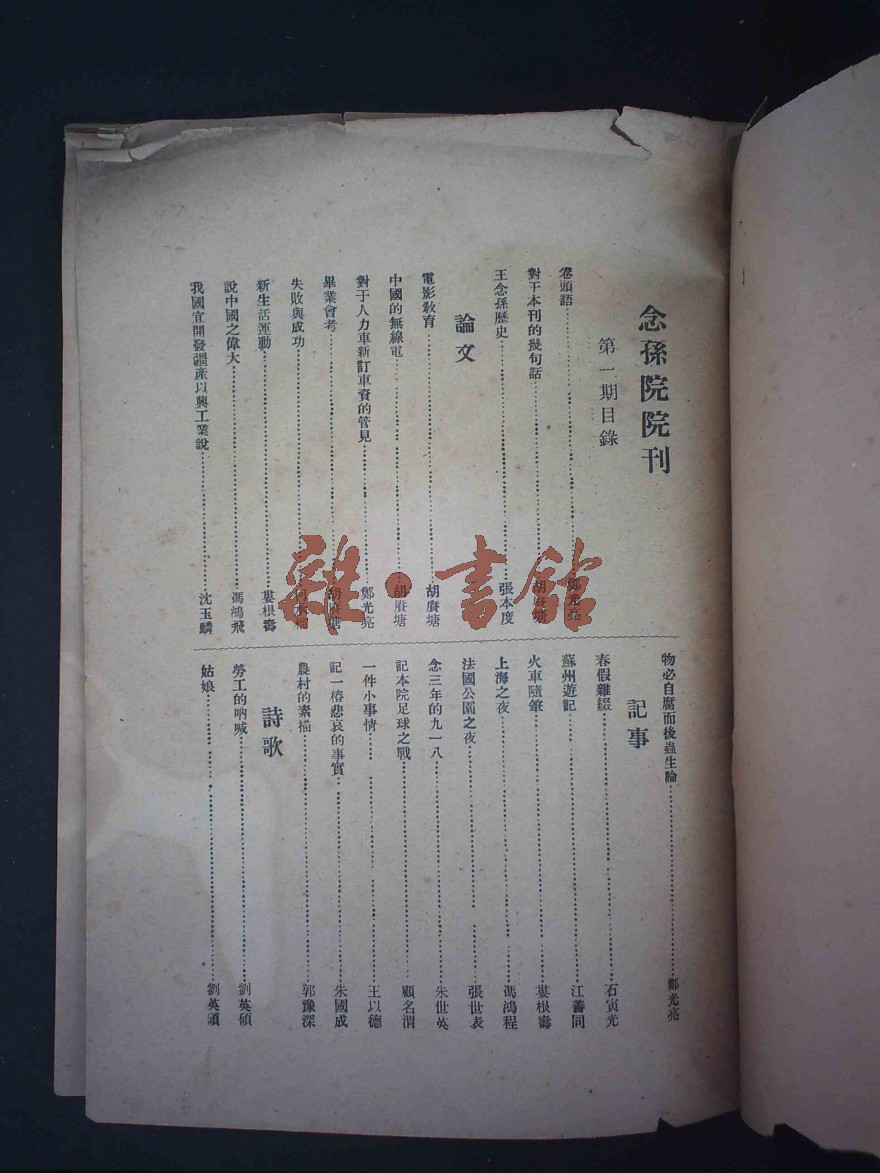 念孫院院刊
第一期目錄
卷頭語…鄭光亮
對于本刊的幾句話…胡賡塘
王念孫歷史…張本度
論文
電影教育…胡賡塘
中國的無線電…胡賡塘
對于人力車新訂車資的管見…鄭光亮
畢業會考…胡賡塘
失敗與成功…
新生活運動…婁根壽
說中國之偉大…馮鴻飛
我國宜開發疆產以興工業說…沈玉麟
物必自腐而後蟲生論…鄭光亮
記事
春假雜綴…石寅光
蘇州遊記…江善同
火車隨筆…婁根壽
上海之夜…馮鴻程
法國公園之夜…張世表
念三年的九一八…朱世英
記本院足球之戰…顧名渭
一件小事情…王以德
記一樁悲哀的事實…朱國成
農村的素描…郭豫深
詩歌
勞工的吶喊…劉英碩
姑娘…劉英碩
雜·書館